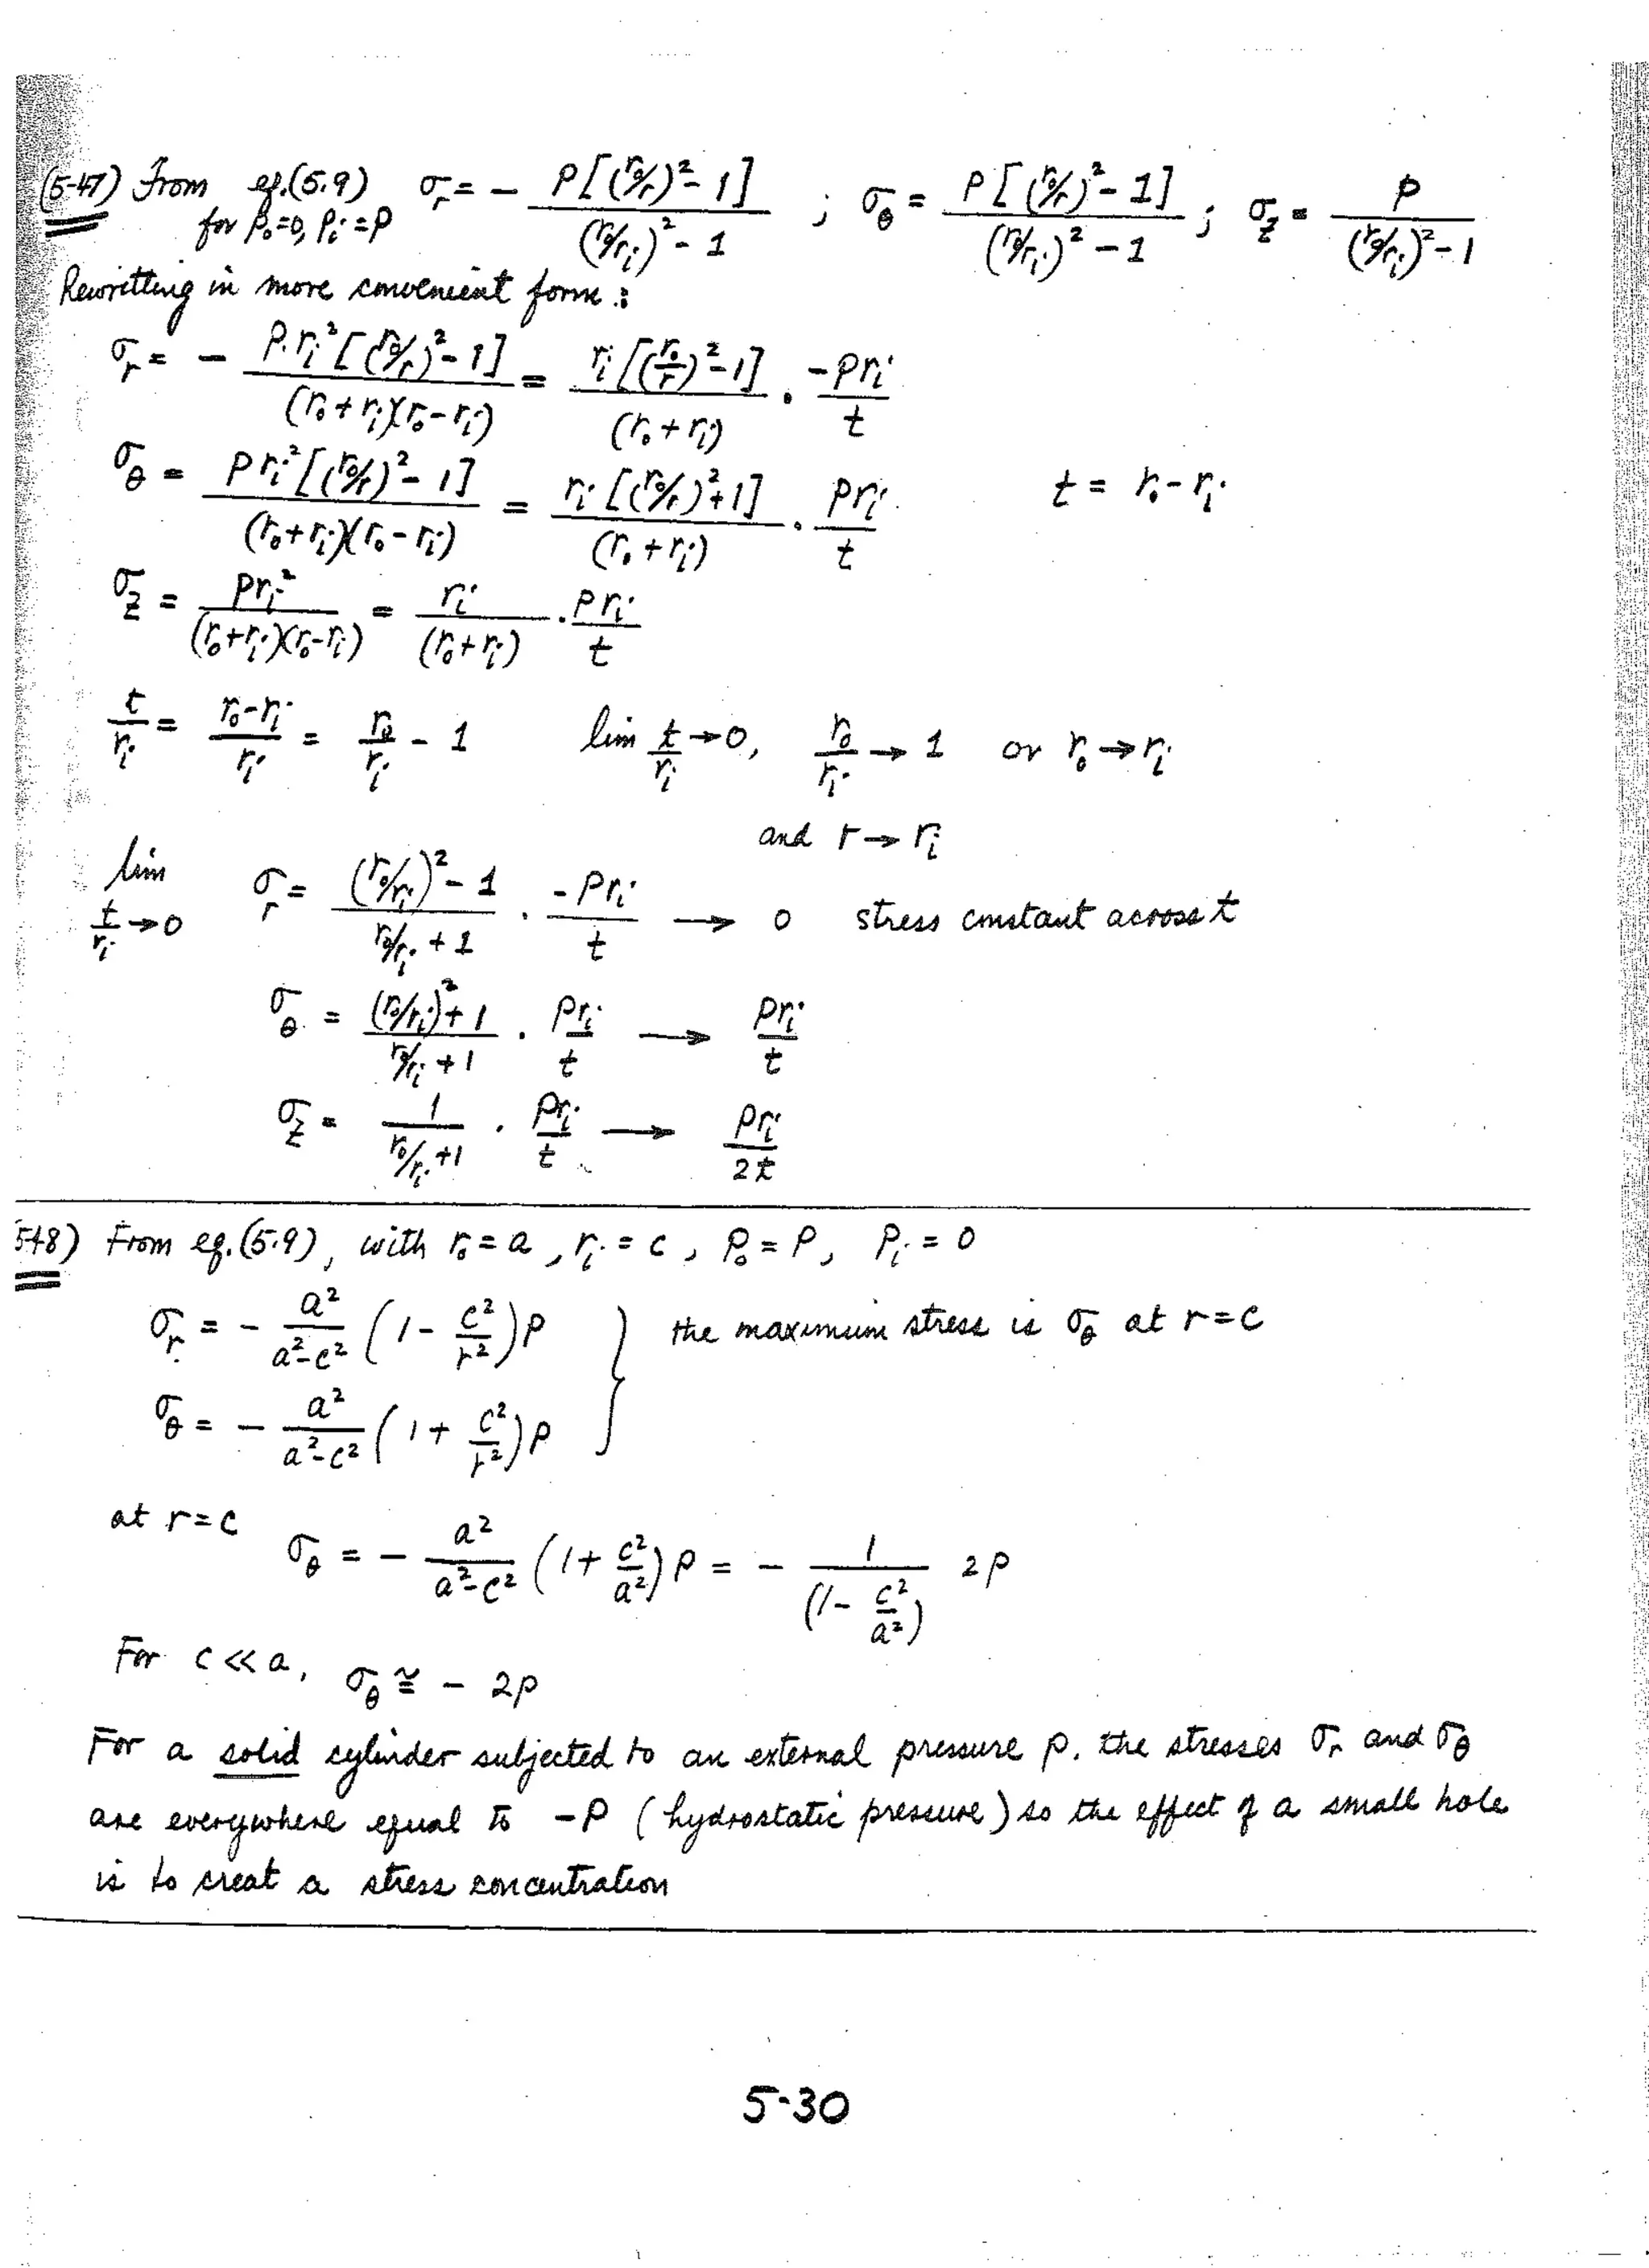 (5-47) From eq.(5.9) σr = - P[(ro/r)²-1] / (ro/ri)²-1 ; σθ = P[(ro/r)²-1] / (ro/ri)²-1 ; σz = P / (ro/ri)²-1
for Po=0, Pi=P
Rewritting in more convenient form :
σr = - P.ri²[(ro/r)²-1] / (ro+ri)(ro-ri) = ri[(ro/r)²-1] / (ro+ri) . -Pri / t
σθ = Pri²[(ro/r)²-1] / (ro+ri)(ro-ri) = ri[(ro/r)²+1] / (ro+ri) . Pri / t t = ro-ri
σz = Pri² / (ro+ri)(ro-ri) = ri / (ro+ri) . Pri / t
t/ri = ro-ri / ri = ro/ri - 1 lim t/ri → 0, ro/ri → 1 or ro → ri
and r → ri
lim t/ri → 0 σr = (ro/ri)²-1 / ro/ri + 1 . -Pri / t → 0 stress constant across t
σθ = (ro/ri)²+1 / ro/ri + 1 . Pri / t → Pri / t
σz = 1 / ro/ri +1 . Pri / t → Pri / 2t
5-48) From eq.(5.9), with ro = a, ri = c, Po = P, Pi = 0
σr = - a² / a²-c² (1 - c²/r²)P } the maximum stress is σθ at r = c
σθ = - a² / a²-c² (1 + c²/r²)P
at r=c σθ = - a² / a²-c² (1 + c²/a²) P = - 1 / (1 - c²/a²) 2P
For c << a, σθ ≅ - 2P
For a solid cylinder subjected to an external pressure P, the stresses σr and σθ
are everywhere equal to -P (hydrostatic pressure) so the effect of a small hole
is to creat a stress concentration
5-30